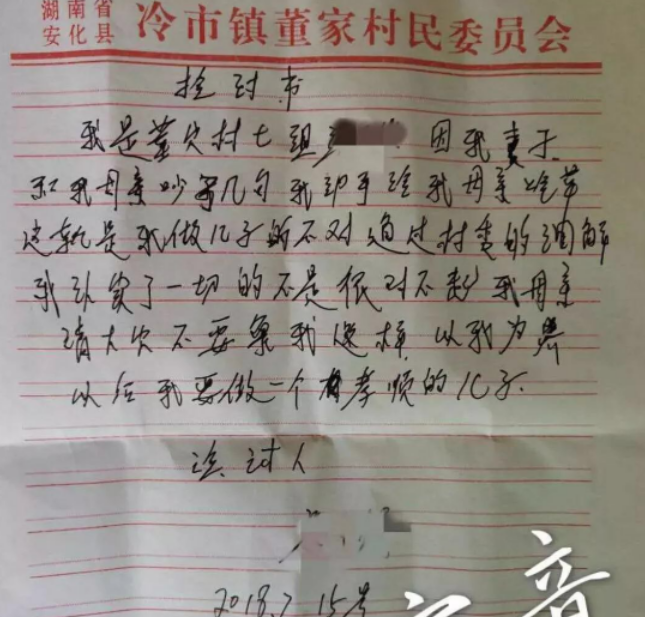 湖南省
安化县
冷市镇董家村民委员会
捡讨书
我是董家村七组 因我妻子
和我母亲吵了几句我动手给我母亲
这就是我做儿子的不对通过村委的调解
我认实了一切的不是很对不起我母亲
请大家不要象我这样 以我为
以后我要做一个有孝顺的儿子.
讨人
2018.7 15号
音